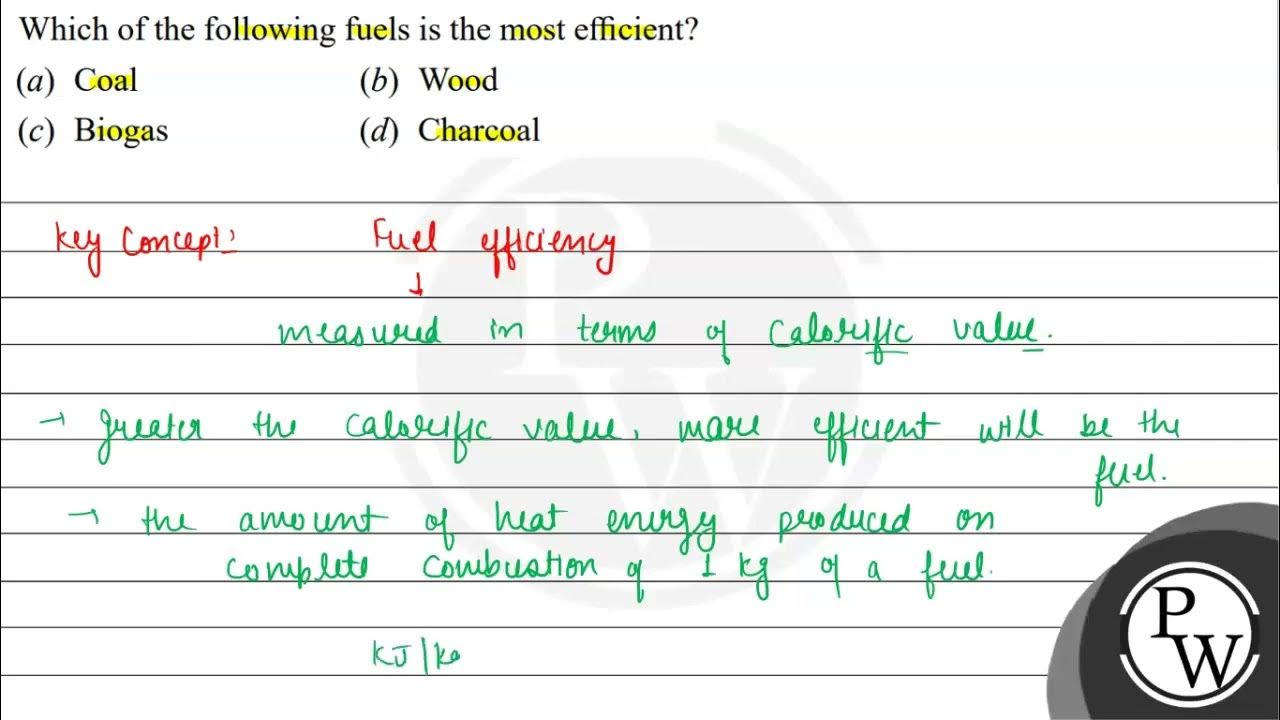 Which of the following fuels is the most efficient?
(a) Coal (b) Wood
(c) Biogas (d) Charcoal
Key Concept: Fuel efficiency
↓
measured in terms of Calorific value.
→ greater the calorific value, more efficient will be the
fuel.
→ the amount of heat energy produced on
complete combustion of 1 kg of a fuel.
KJ/kg
PW
PW